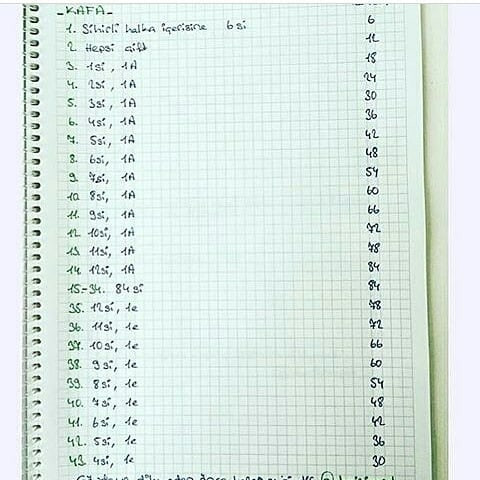 -KAFA-
1. Sihirli halka içerisine 6si 6
2. Hepsi çift 12
3. 1si, 1A 18
4. 2si, 1A 24
5. 3si, 1A 30
6. 4si, 1A 36
7. 5si, 1A 42
8. 6si, 1A 48
9. 7si, 1A 54
10. 8si, 1A 60
11. 9si, 1A 66
12. 10si, 1A 72
13. 11si, 1A 78
14. 12si, 1A 84
15-34. 84si 84
35. 12si, 1e 78
36. 11si, 1e 72
37. 10si, 1e 66
38. 9si, 1e 60
39. 8si, 1e 54
40. 7si, 1e 48
41. 6si, 1e 42
42. 5si, 1e 36
43. 4si, 1e 30